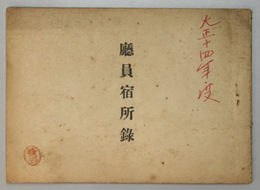 大正十四年度
廳員宿所錄